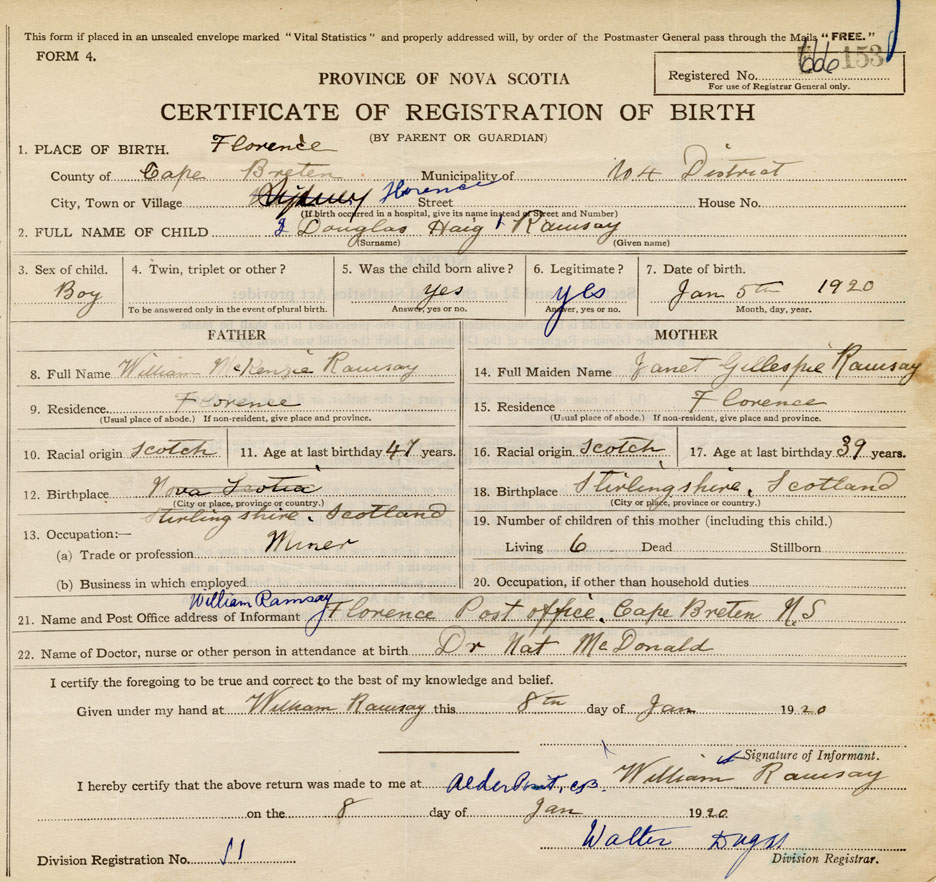 This form if placed in an unsealed envelope marked "Vital Statistics" and properly addressed will, by order of the Postmaster General pass through the Mails "FREE."
FORM 4.
666 153
Registered No.
For use of Registrar General only.
PROVINCE OF NOVA SCOTIA
CERTIFICATE OF REGISTRATION OF BIRTH
(BY PARENT OR GUARDIAN)
1. PLACE OF BIRTH. Florence
County of Cape Breten Municipality of No 4 District
City, Town or Village Sydney Florence Street House No.
(If birth occurred in a hospital, give its name instead of Street and Number)
2. FULL NAME OF CHILD 2 Douglas Haig 1 Ramsay
(Surname) (Given name)
3. Sex of child. 4. Twin, triplet or other? 5. Was the child born alive? 6. Legitimate? 7. Date of birth.
Boy yes yes Jan 5th 1920
To be answered only in the event of plural birth. Answer, yes or no. Answer, yes or no. Month, day, year.
FATHER MOTHER
8. Full Name William McKenzie Ramsay 14. Full Maiden Name Janet Gillespie Ramsay
9. Residence Florence 15. Residence Florence
(Usual place of abode.) If non-resident, give place and province. (Usual place of abode.) If non-resident, give place and province.
10. Racial origin Scotch 11. Age at last birthday 47 years. 16. Racial origin Scotch 17. Age at last birthday 39 years.
12. Birthplace Nova Scotia 18. Birthplace Stirlingshire, Scotland
(City or place, province or country.) (City or place, province or country.)
Stirlingshire, Scotland 19. Number of children of this mother (including this child.)
13. Occupation:—
(a) Trade or profession Miner Living 6 Dead Stillborn
(b) Business in which employed 20. Occupation, if other than household duties
William Ramsay
21. Name and Post Office address of Informant Florence Post office, Cape Breten N.S
22. Name of Doctor, nurse or other person in attendance at birth Dr Nat McDonald
I certify the foregoing to be true and correct to the best of my knowledge and belief.
Given under my hand at William Ramsay this 8th day of Jan 1920
Signature of Informant.
I hereby certify that the above return was made to me at Alder Point, C.B. William Ramsay
on the 8 day of Jan 1920
Walter
Division Registration No. 51 Division Registrar.